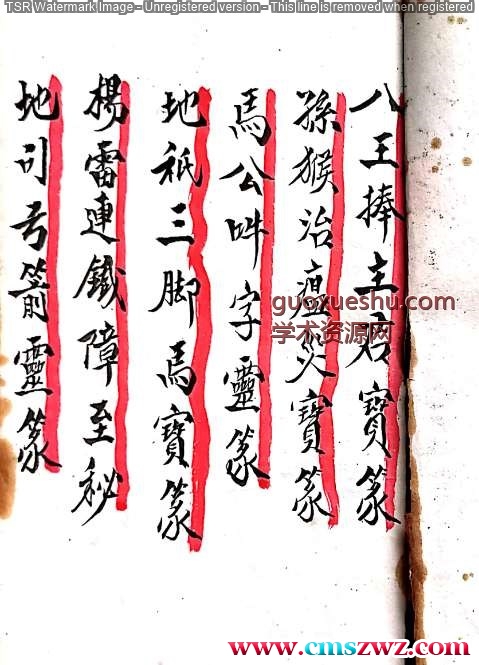 TSR Watermark Image - Unregistered version - This line is removed when registered
八王捧主君寶篆
孫猴治瘟災寶篆
馬公吽字靈篆
地祇三脚馬寶篆
楊雷連鐵障至秘
地司弓箭靈篆
guoxueshu.com
学术资源网
www.cmszwz.com